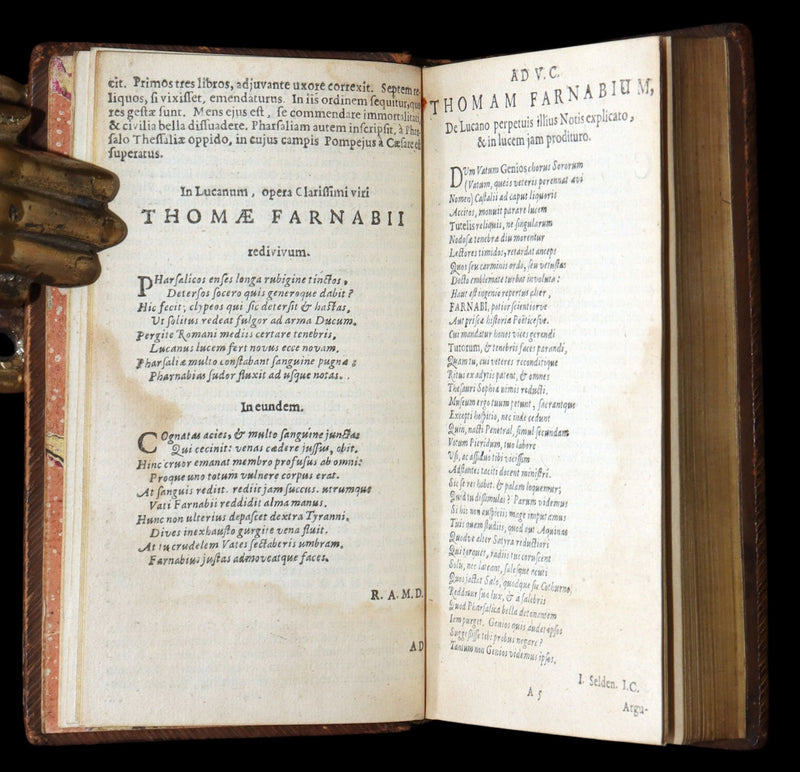 cit. Primos tres libros, adjuvante uxore correxit. Septem re-
liquos, si vixisset, emendaturus. In iis ordinem sequitur, quo
res gestæ sunt. Mens ejus est, se commendare immortalitati
& civilia bella dissuadere. Pharsaliam autem inscripsit, à Phar-
salo Thessaliæ oppido, in cujus campis Pompejus à Cæsare est
superatus.
In Lucanum, opera Clarissimi viri
THOMÆ FARNABII
redivivum.
PHarsalicos enses longa rubigine tinctos,
Detersos socero quis generoque dabit?
Hic fecit; clypeos qui sic detersit & hastas,
Ut solitus redeat fulgor ad arma Ducum.
Pergite Romani mediis certare tenebris,
Lucanus lucem fert novus ecce novam.
Pharsaliæ multo constabant sanguine pugnæ;
Pharnabius sudor fluxit ad usque notas.
In eundem.
COgnatas acies, & multo sanguine junctas
Qui cecinit: venas cædere jussus, obit.
Hinc cruor emanat membro profusus ab omni:
Proque uno totum vulnere corpus erat.
At sanguis rediit. rediit jam succus. utrumque
Vati Farnabii reddidit alma manus.
Hunc non ulterius depascet dextra Tyranni,
Dives inexhausto gurgite vena fluit.
At tu crudelem Vates sectaberis umbram,
Farnabius justas admoveatque faces.
R. A. M. D.
AD
AD V. C.
THOMAM FARNABIUM,
De Lucano perpetuis illius Notis explicato,
& in lucem jam prodituro.
DUm Vatum Genios chorus Sororum
(Vatum, queis veteris perennat ævi
Nomen) Castalii ad caput liquoris
Accitos, monuit parare lucem
Tutelis reliquis, ne singularum
Nodosæ tenebræ diu morentur
Lectores timidos, retardat anceps
Quos seu carminis ordo, seu vetustas
Docto emblemate turbat involuto:
Haut est ingenio repertus alter,
FARNABI, potior scientiorve
Aut priscæ historiæ Poëticesve.
Cui mandatur hones vices gerendi
Tutorum, & tenebris faces parandi,
Quam tu, cui veteres reconditæque
Ritus ex adytis patent, & omnes
Thesauri Sophiæ nimis reducti.
Museum ergo tuum petunt, sacrantque
Excepti hospitio, nec inde cedunt
Quin, nacti Penetral, simul secundam
Votum Pieridum, tuo labore
Usi, ac assidui tibi vicissim
Adstantes taciti docent ministri.
Sic se res habet, & palam loquemur;
Quid tu dissimules? Parum videmus
Si his non auspiciis magè imputamus
Tuis quam studiis, quod aut Aquinas
Quodve alter Satyra reductiori
Qui torquet, radiis tuis coruscent
Solis, nec lateant, salesque acuti
Quos jactat Salo, quodque sic Cothurno
Redditur sua lux, & a salebris
Quod Pharsalica bella detonantem
Iem purget. Genios quis audet ipsos
Suggessisse tibi probus negare?
Tantum non Genios videmus ipsos.
I. Selden. I.C.
A 5
Argu-